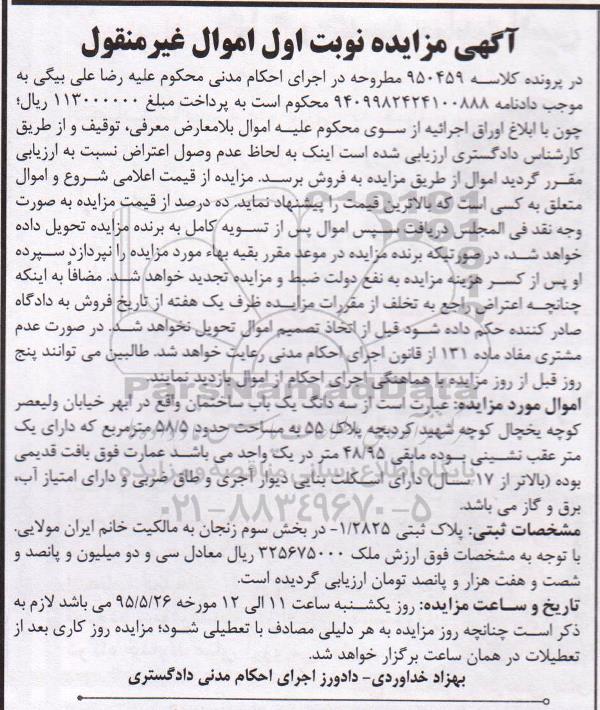 آگهی مزایده نوبت اول اموال غیرمنقول
در پرونده کلاسه ۹۵۰۴۵۹ مطروحه در اجرای احکام مدنی محکوم علیه رضا علی بیگی به
موجب دادنامه ۹۴۰۹۹۸۲۴۲۴۱۰۰۸۸۸ محکوم است به پرداخت مبلغ ۱۱۳۰۰۰۰۰۰ ریال؛
چون با ابلاغ اوراق اجرائیه از سوی محکوم علیه اموال بلامعارض معرفی، توقیف و از طریق
کارشناس دادگستری ارزیابی شده است اینک به لحاظ عدم وصول اعتراض نسبت به ارزیابی
مقرر گردید اموال از طریق مزایده به فروش برسد. مزایده از قیمت اعلامی شروع و اموال
متعلق به کسی است که بالاترین قیمت را پیشنهاد نماید. ده درصد از قیمت مزایده به صورت
وجه نقد فی المجلس دریافت سپس اموال پس از تسویه کامل به برنده مزایده تحویل داده
خواهد شد، در صورتیکه برنده مزایده در موعد مقرر بقیه بهاء مورد مزایده را نپردازد سپرده
او پس از کسر هزینه مزایده به نفع دولت ضبط و مزایده تجدید خواهد شد. مضافا به اینکه
چنانچه اعتراض راجع به تخلف از مقررات مزایده ظرف یک هفته از تاریخ فروش به دادگاه
صادر کننده حکم داده شود قبل از اتخاذ تصمیم اموال تحویل نخواهد شد. در صورت عدم
مشتری مفاد ماده ۱۳۱ از قانون اجرای احکام مدنی رعایت خواهد شد. طالبین می توانند پنج
روز قبل از روز مزایده با هماهنگی اجرای احکام از اموال بازدید نمایند.
اموال مورد مزایده: عبارت است از سه دانگ یک باب ساختمان واقع در ابهر خیابان ولیعصر
کوچه یخچال کوچه شهید کردبچه پلاک ۵۵ به مساحت حدود ۵۸/۵ مترمربع که دارای یک
متر عقب نشینی بوده مابقی ۴۸/۹۵ متر در یک واحد می باشد عمارت فوق بافت قدیمی
بوده (بالاتر از ۱۷ سال) دارای اسکلت بنایی دیوار آجری و طاق ضربی و دارای امتیاز آب،
برق و گاز می باشد.
مشخصات ثبتی: پلاک ثبتی ۱/۲۸۲۵- در بخش سوم زنجان به مالکیت خانم ایران مولایی.
با توجه به مشخصات فوق ارزش ملک ۳۲۵۶۷۵۰۰۰ ریال معادل سی و دو میلیون و پانصد و
شصت و هفت هزار و پانصد تومان ارزیابی گردیده است.
تاریخ و ساعت مزایده: روز یکشنبه ساعت ۱۱ الی ۱۲ مورخه ۹۵/۵/۲۶ می باشد لازم به
ذکر است چنانچه روز مزایده به هر دلیلی مصادف با تعطیلی شود؛ مزایده روز کاری بعد از
تعطیلات در همان ساعت برگزار خواهد شد.
بهزاد خداوردی- دادورز اجرای احکام مدنی دادگستری
ParsNamadData
پایگاه اطلاع رسانی مناقصه و مزایده
۰۲۱-۸۸۳۴۹۶۷۰-۵